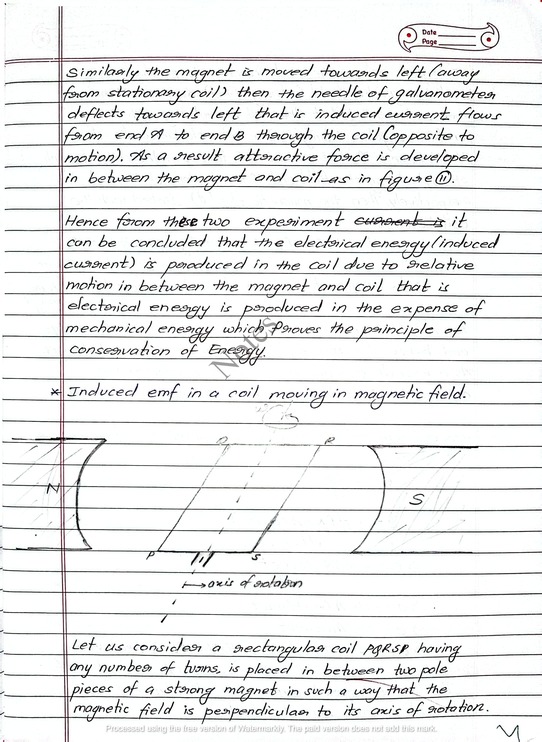 Date
Page
Similarly the magnet is moved towards left (away
from stationary coil) then the needle of galvanometer
deflects towards left that is induced current flows
from end A to end B through the coil (opposite to
motion). As a result attractive force is developed
in between the magnet and coil as in figure (II).
Hence from these two experiment current is it
can be concluded that the electrical energy (induced
current) is produced in the coil due to relative
motion in between the magnet and coil that is
electrical energy is produced in the expense of
mechanical energy which proves the principle of
conservation of Energy.
Notes
* Induced emf in a coil moving in magnetic field.
Q R
N S
P S
axis of rotation
Let us consider a rectangular coil PQRSP having
any number of turns, is placed in between two pole
pieces of a strong magnet in such a way that the
magnetic field is perpendicular to its axis of rotation.
Processed using the free version of Watermarkly. The paid version does not add this mark.